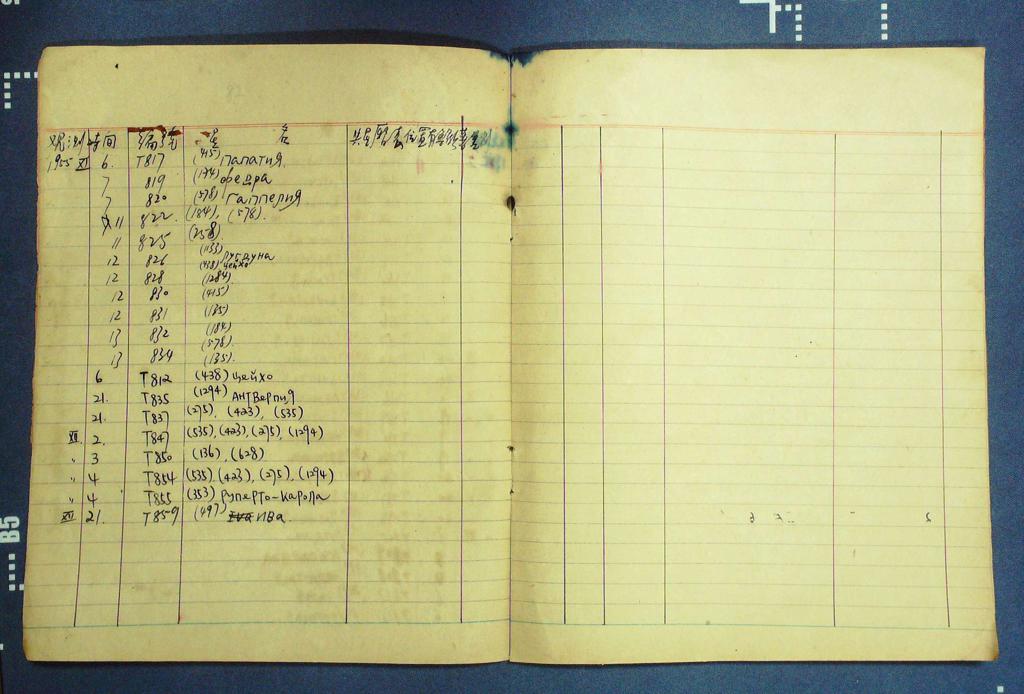 观测时间 编号 星名
1955 XI 6. T817 (415) Палатия
7 819 (174) Федра
7 820 (578) Гаппелия
11 822. (184), (578).
11 825 (258)
12 826 (1133) Лугдуна
12 828 (438) Цейхо
12 830 (1284)
12 831 (415)
13 832 (184)
13 834 (578)
(135).
6 T812 (438) Цейхо
21. T835 (1294) Антверпия
21. T837 (275), (423), (535)
XII 2. T847 (535), (423), (275), (1294)
" 3 T850 (136), (628)
" 4 T854 (535), (423), (275), (1294)
" 4 T855 (353) Руперто-Карола
XII 21. T859 (497) Ива.
B5